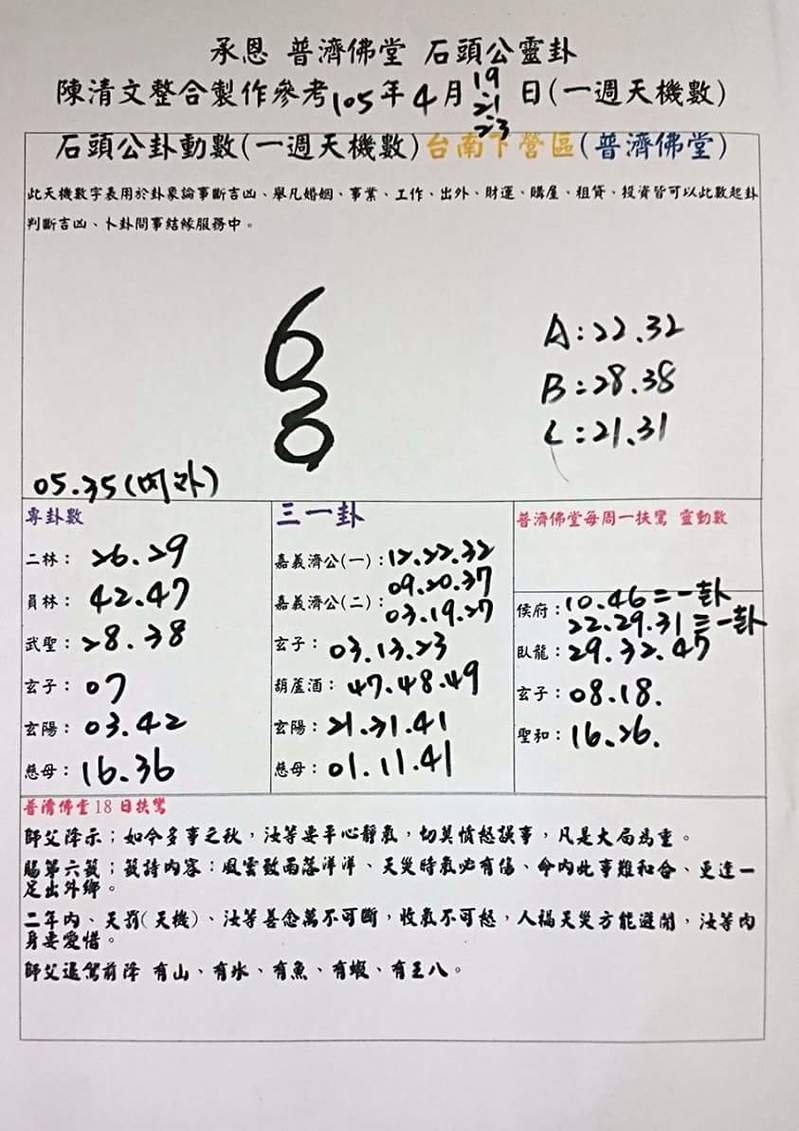 承恩 普濟佛堂 石頭公靈卦
陳清文整合製作參考105年4月19.21.23日(一週天機數)
石頭公卦動數(一週天機數)台南下營區(普濟佛堂)
此天機數字表用於卦象論事斷吉凶、舉凡婚姻、事業、工作、出外、財運、購屋、租賃、投資皆可以此數起卦
判斷吉凶、卜卦問事結緣服務中。
A:22.32
B:28.38
C:21.31
05.35
專卦數
二林： 26.29
員林： 42.47
武聖： 28.38
玄子： 07
玄陽： 03.42
慈母： 16.36
三一卦
嘉義濟公(一)：12.22.32
09.20.37
嘉義濟公(二)：03.19.27
玄子： 03.13.23
葫蘆酒： 47.48.49
玄陽： 21.31.41
慈母： 01.11.41
普濟佛堂每周一扶鸞 靈動數
侯府：10.46二一卦
22.29.31三一卦
臥龍：29.32.47
玄子：08.18.
聖和：16.26.
普濟佛堂18日扶鸞
師父降示；如今多事之秋，汝等要平心靜氣，切莫憤怒誤事，凡是大局為重。
賜第六籤；籤詩內容：風雲致雨落洋洋、天災時氣必有傷、命內此事難和合、更逢一
足出外鄉。
二年內、天罰(天機)、汝等善念萬不可斷，收氣不可怒，人禍天災方能避開，汝等肉
身要愛惜。
師父退駕前降 有山、有水、有魚、有蝦、有王八。